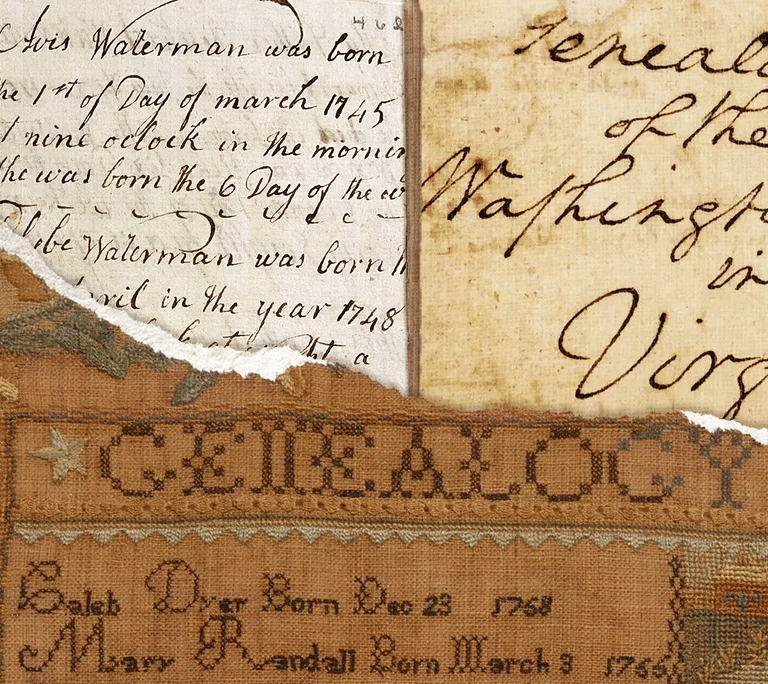 468
Avis Waterman was born
he 1st of Day of march 1745
t nine oclock in the mornin
she was born the 6 Day of the
Phebe Waterman was born
April in the year 1748
a
Genealo
of the
Washingt
in
Virg
GENEALOGY
Caleb Dyer Born Dec 23 1768
Mary Randall Born March 3 1766